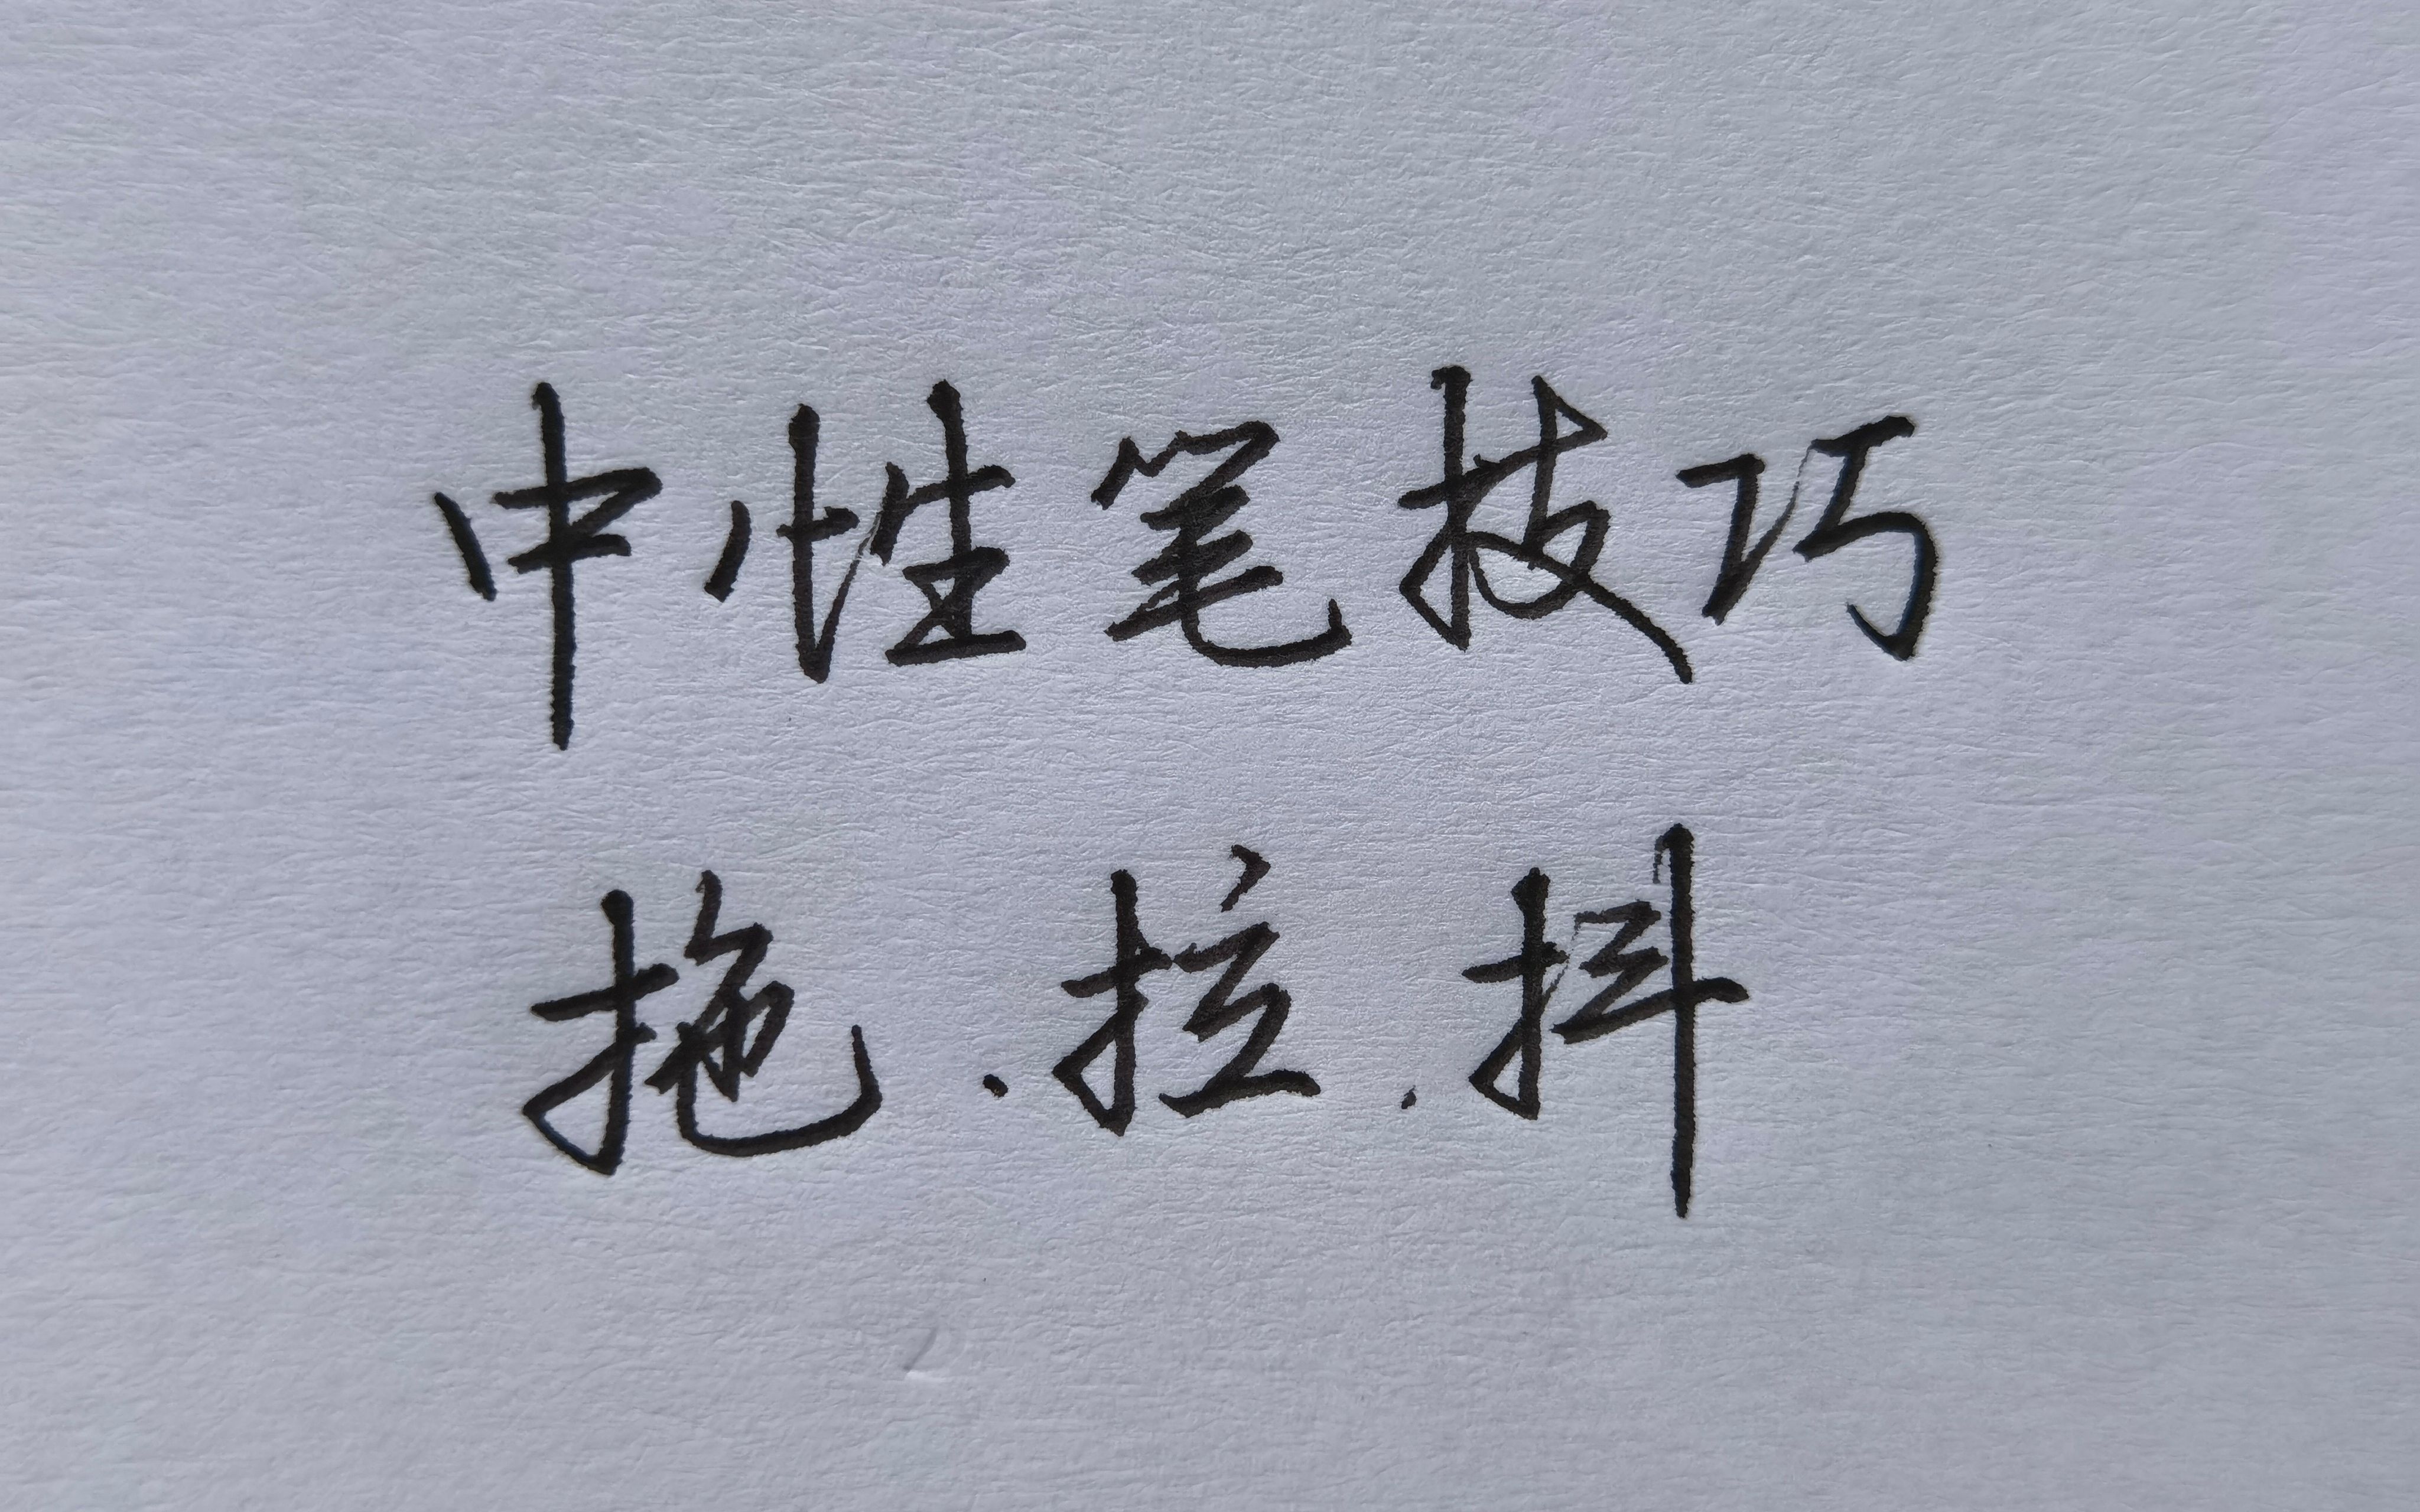 中性笔技巧
拖.拉.抖